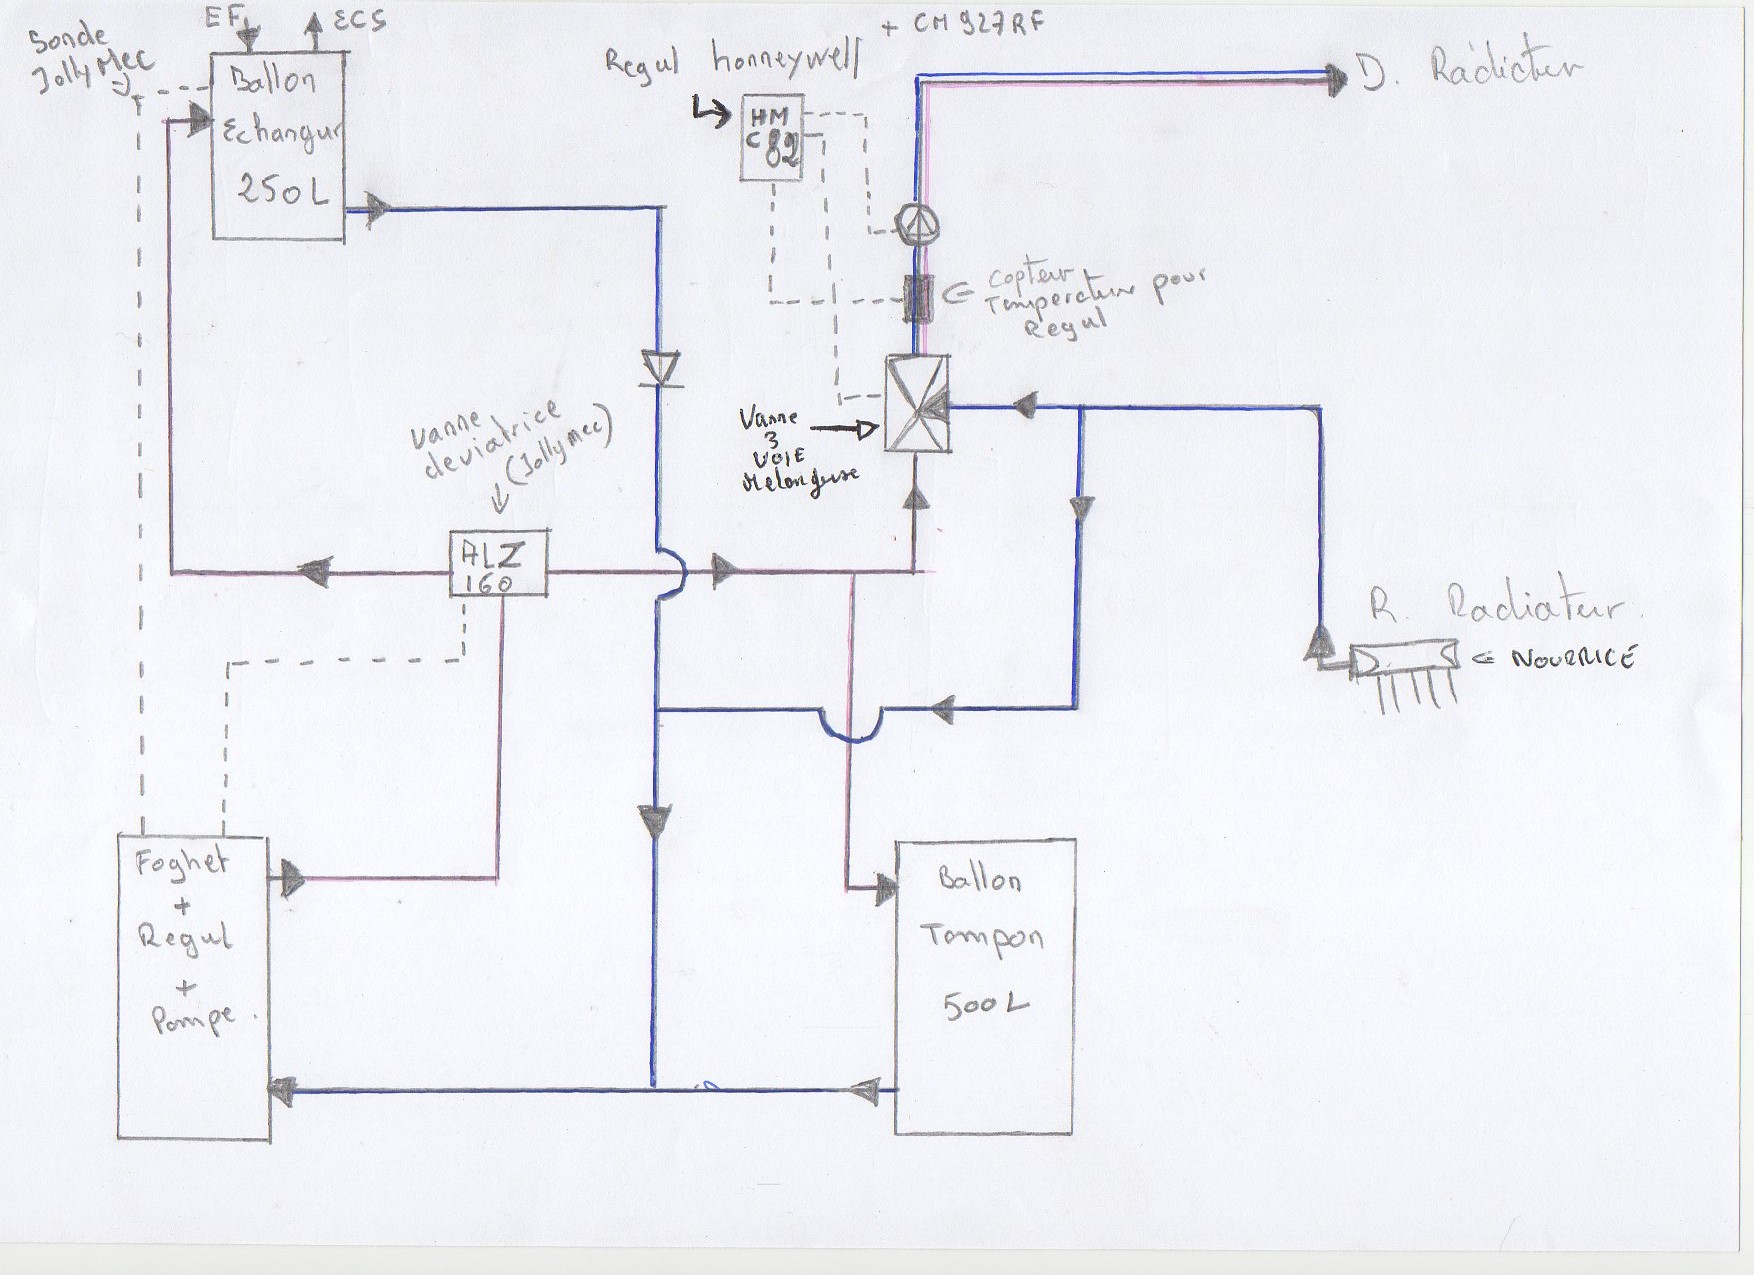 EF
ECS
Sonde
Jolly Mec
Ballon
Echangur
250L
+ CM927RF
Regul honneywell
HM
C82
D. Radiateur
Capteur
Temperature pour
Regul
Vanne
3
VOIE
Melangeuse
Vanne
deviatrice
(Jolly mec)
ALZ
160
R. Radiateur
NOURRICE
Foghet
+
Regul
+
Pompe.
Ballon
Tampon
500L